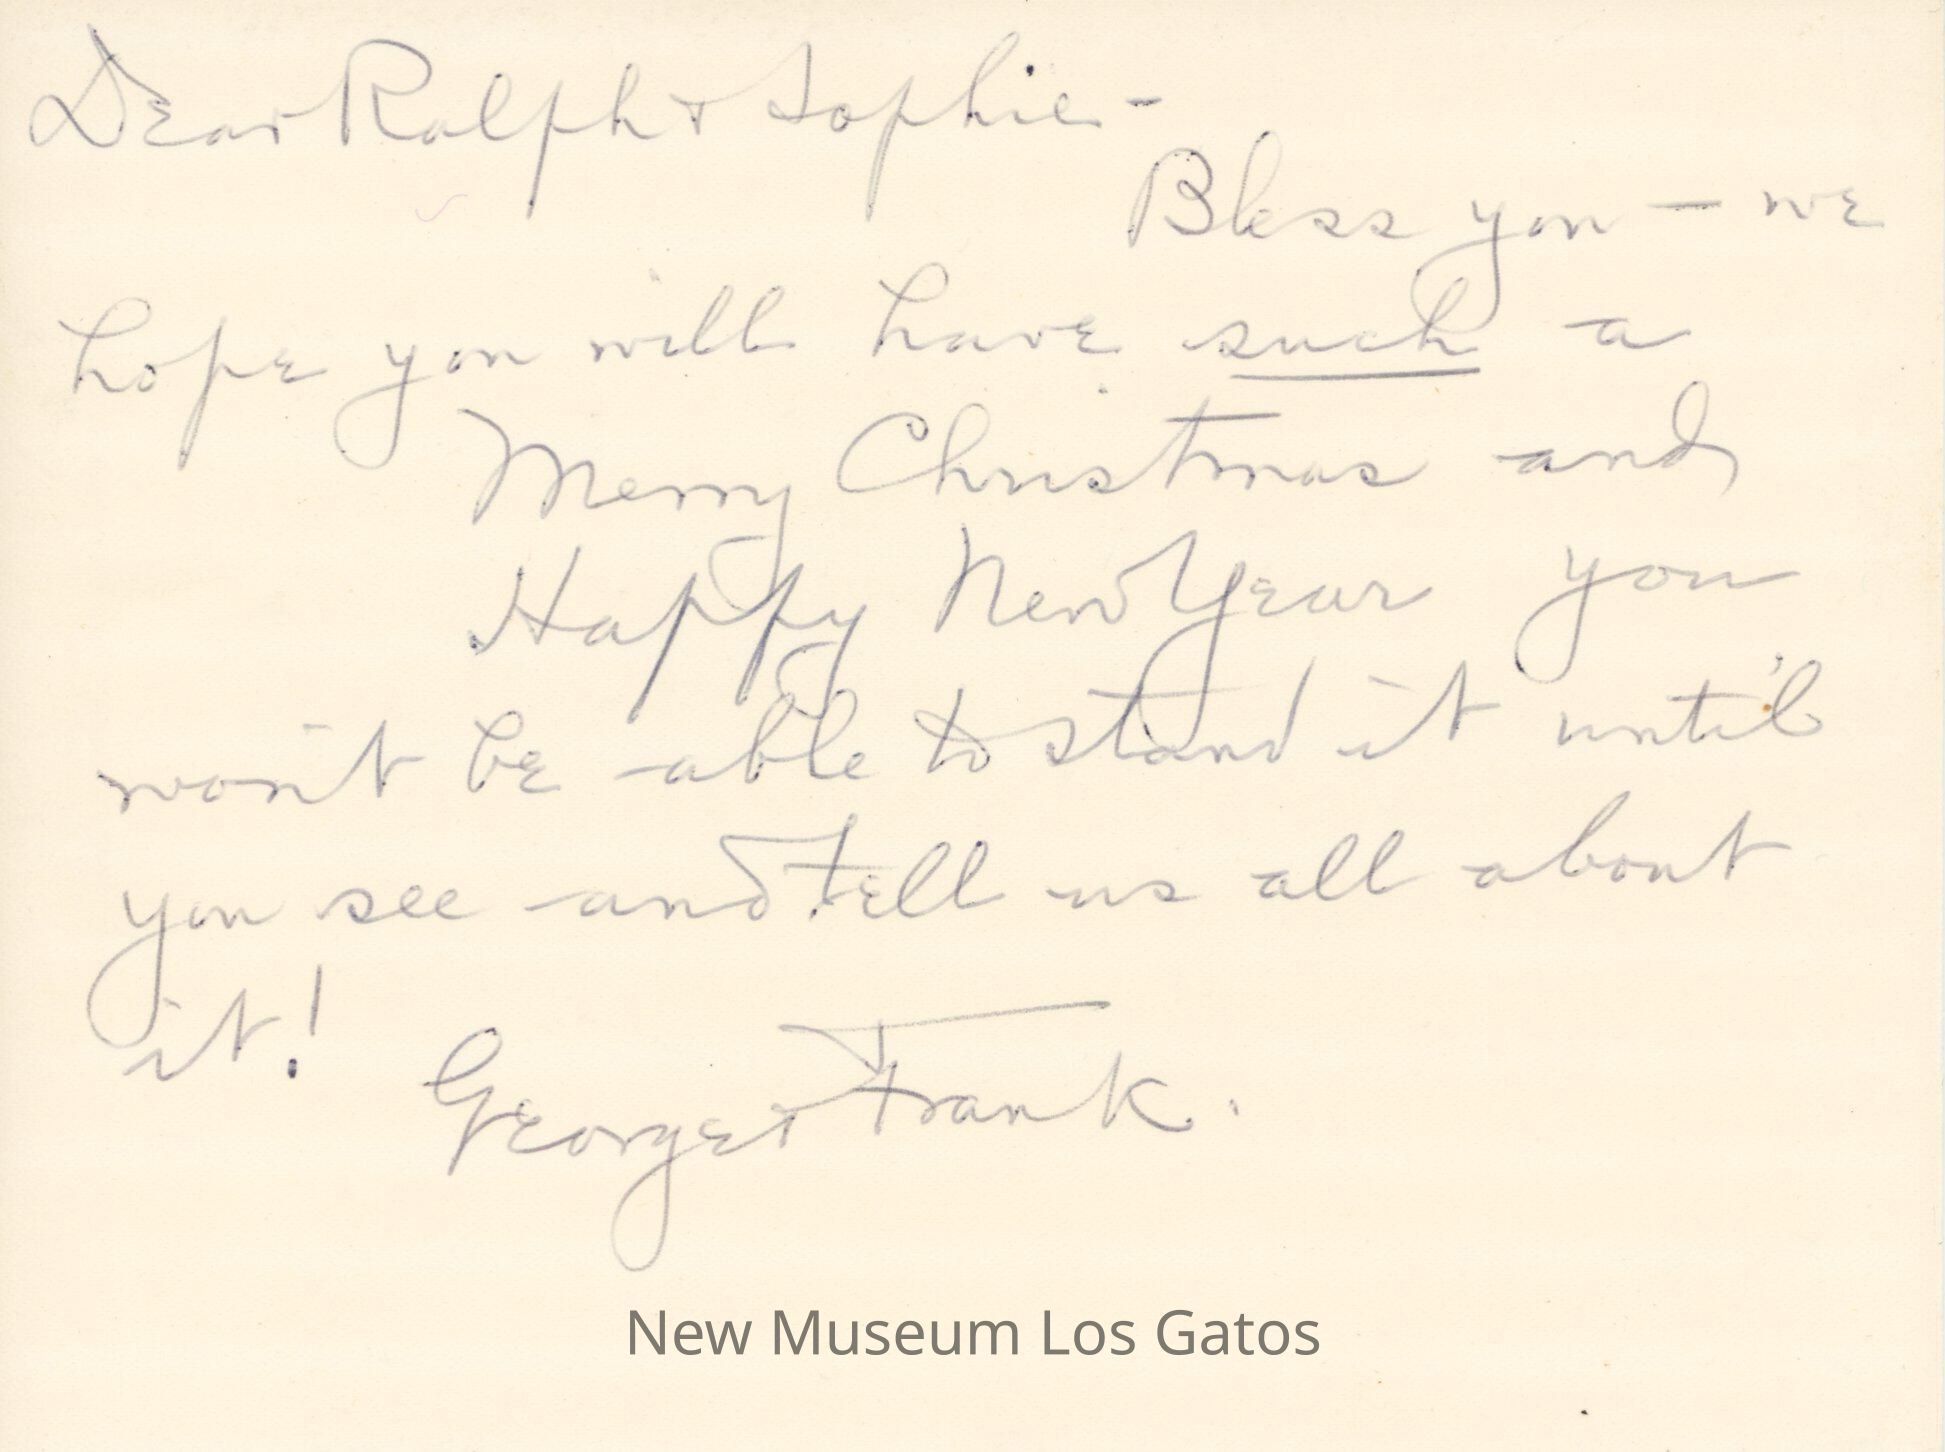 Dear Ralph + Sophie -
Bless you — we
hope you will have such a
Merry Christmas and
Happy New Year you
won't be able to stand it until
you see and tell us all about
it!
George + Frank.
New Museum Los Gatos